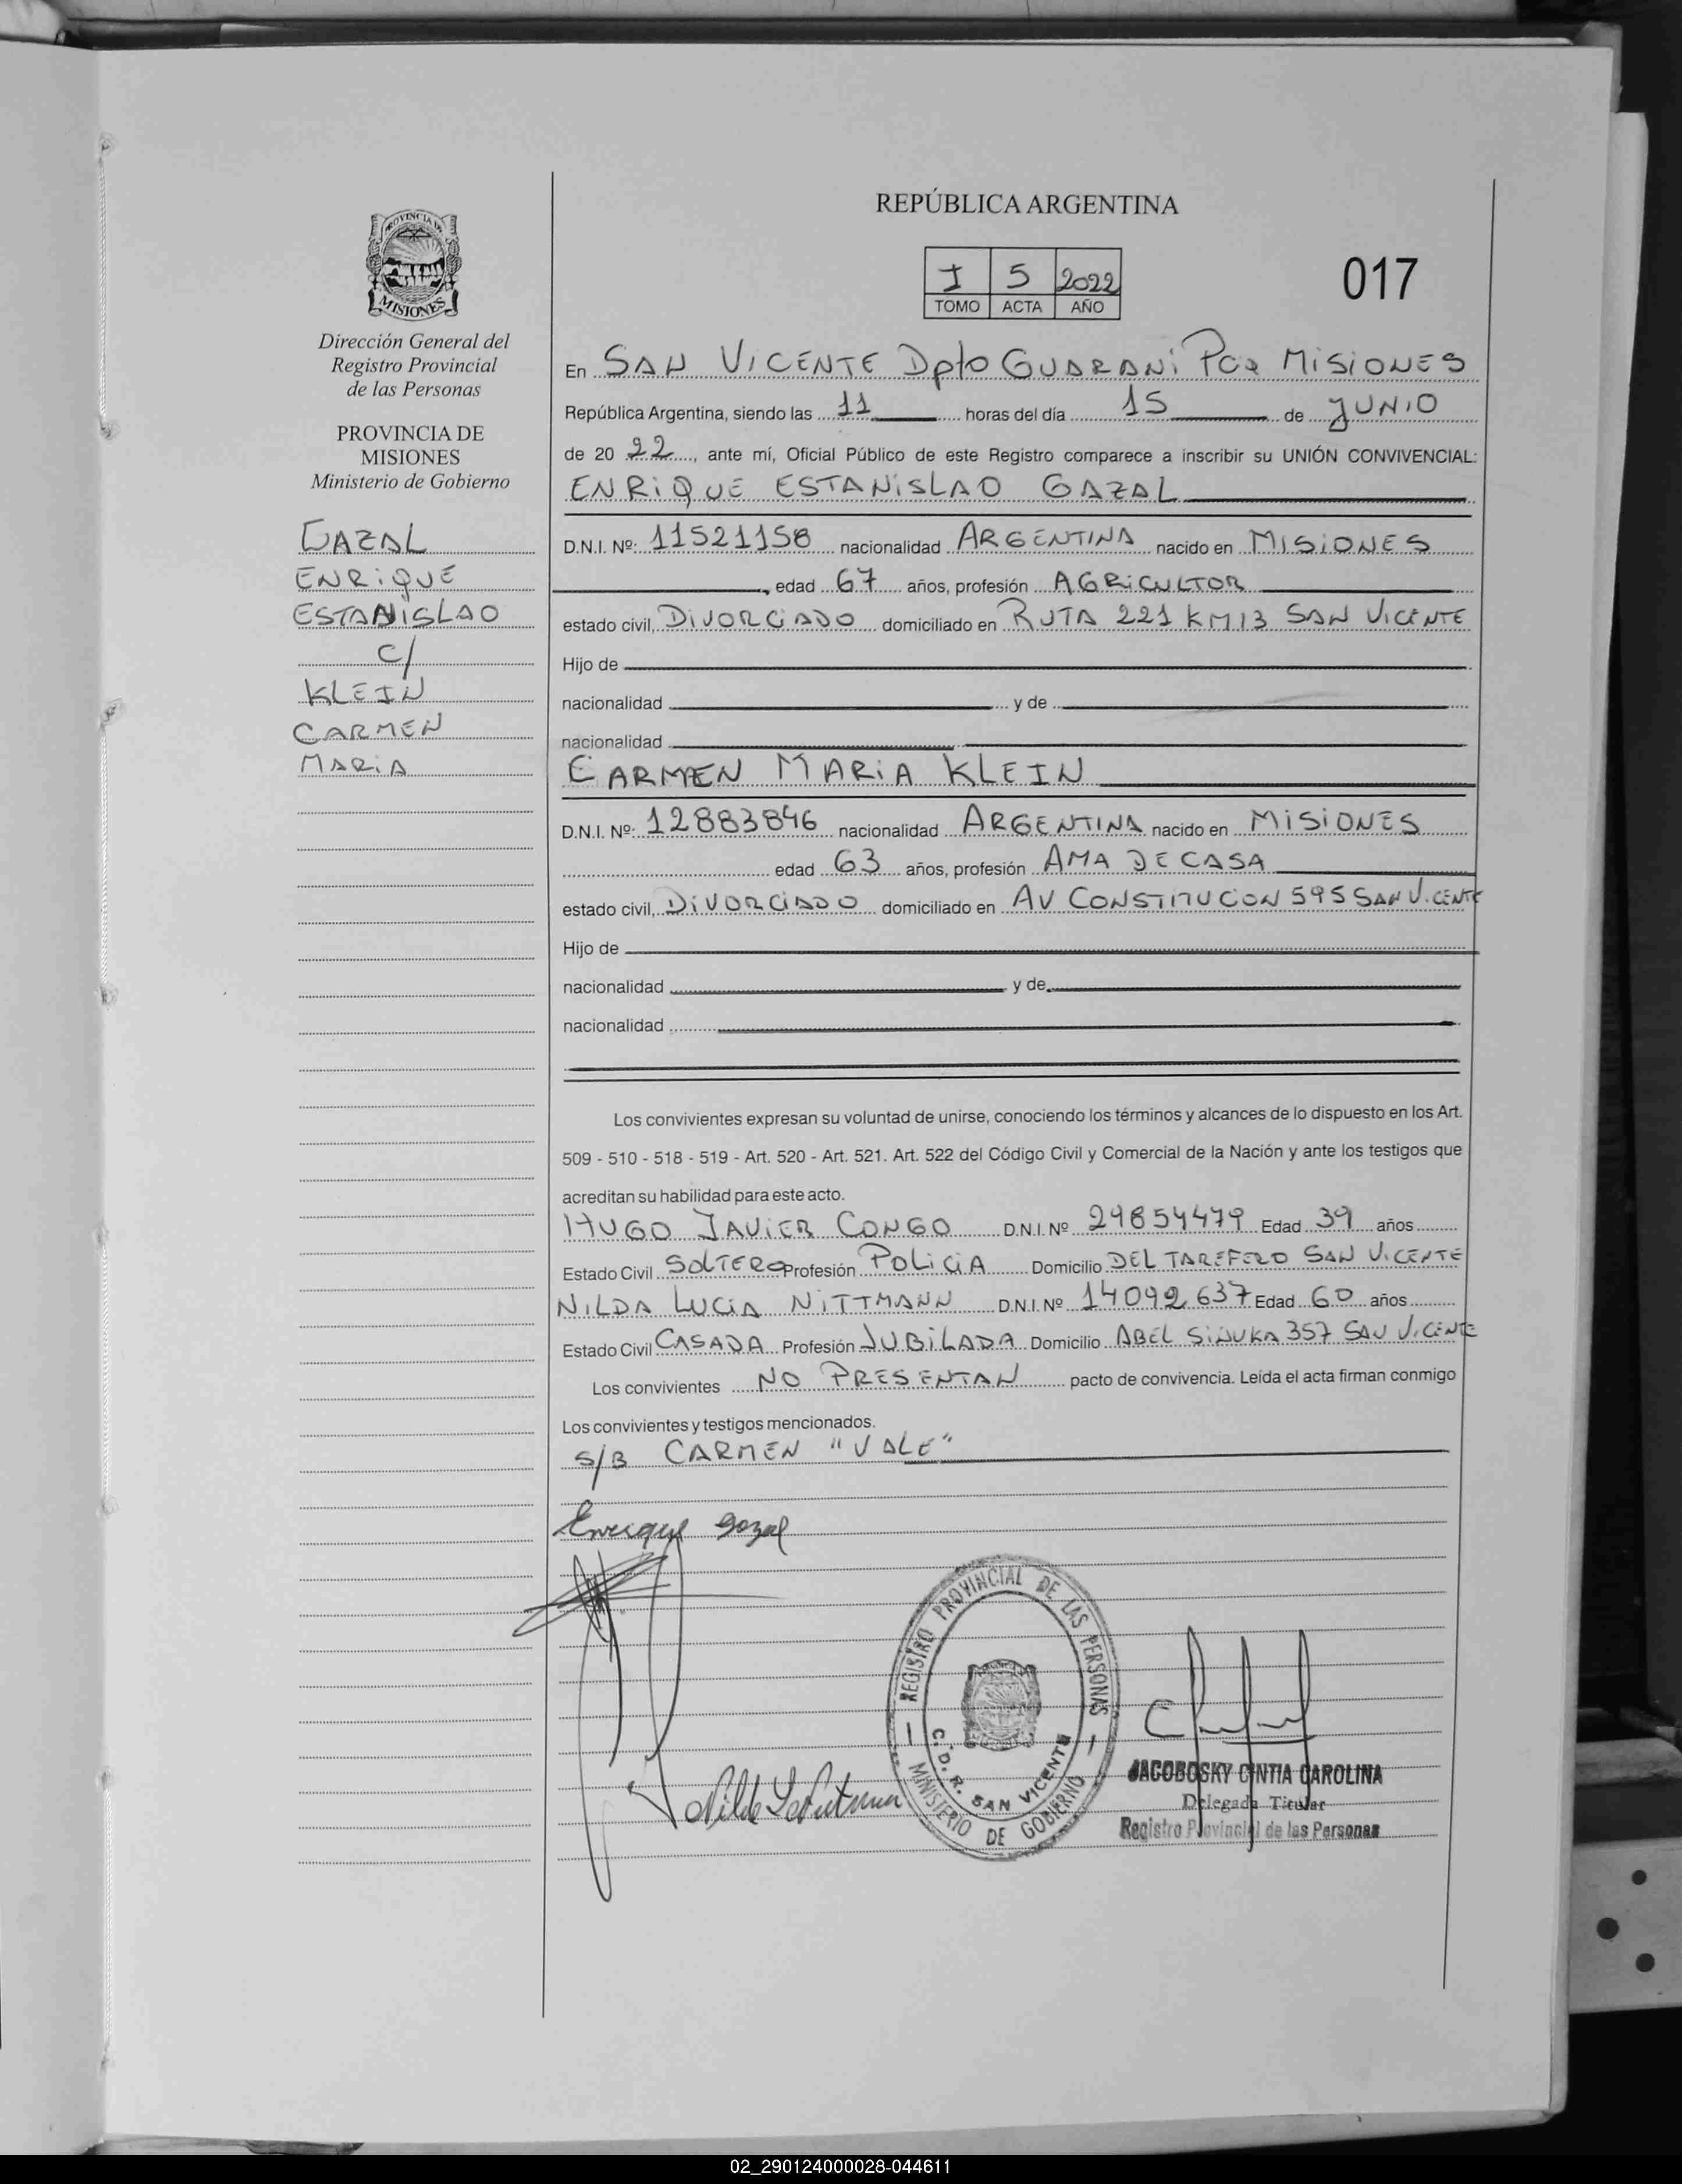 PROVINCIA DE
MISIONES
Dirección General del
Registro Provincial
de las Personas
PROVINCIA DE
MISIONES
Ministerio de Gobierno
GAZAL
ENRIQUE
ESTANISLAO
C/
KLEIN
CARMEN
MARIA
REPÚBLICA ARGENTINA
I 5 2022
TOMO ACTA AÑO
017
En SAN VICENTE Dpto GUARANI Pcia MISIONES
República Argentina, siendo las 11 horas del día 15 de JUNIO
de 20 22, ante mí, Oficial Público de este Registro comparece a inscribir su UNIÓN CONVIVENCIAL:
ENRIQUE ESTANISLAO GAZAL
D.N.I. Nº: 11521158 nacionalidad ARGENTINA nacido en MISIONES
, edad 67 años, profesión AGRICULTOR
estado civil, DIVORCIADO domiciliado en RUTA 221 KM13 SAN VICENTE
Hijo de
nacionalidad y de
nacionalidad
CARMEN MARIA KLEIN
D.N.I. Nº: 12883846 nacionalidad ARGENTINA nacido en MISIONES
edad 63 años, profesión AMA DE CASA
estado civil, DIVORCIADO domiciliado en AV CONSTITUCION 595 SAN VICENTE
Hijo de
nacionalidad y de
nacionalidad
Los convivientes expresan su voluntad de unirse, conociendo los términos y alcances de lo dispuesto en los Art.
509 - 510 - 518 - 519 - Art. 520 - Art. 521. Art. 522 del Código Civil y Comercial de la Nación y ante los testigos que
acreditan su habilidad para este acto.
HUGO JAVIER CONGO D.N.I. Nº 29854479 Edad 39 años
Estado Civil SOLTERO Profesión POLICIA Domicilio DEL TAREFERO SAN VICENTE
NILDA LUCIA NITTMANN D.N.I. Nº 14092637 Edad 60 años
Estado Civil CASADA Profesión JUBILADA Domicilio ABEL 357 SAN VICENTE
Los convivientes NO PRESENTAN pacto de convivencia. Leída el acta firman conmigo
Los convivientes y testigos mencionados.
S/B CARMEN "VALE"
Enrique Gazal
REGISTRO PROVINCIAL DE LAS PERSONAS
C.D.R. SAN VICENTE
MINISTERIO DE GOBIERNO
JACOBOSKY CINTIA CAROLINA
Delegada Titular
Registro Provincial de las Personas
02_290124000028-044611